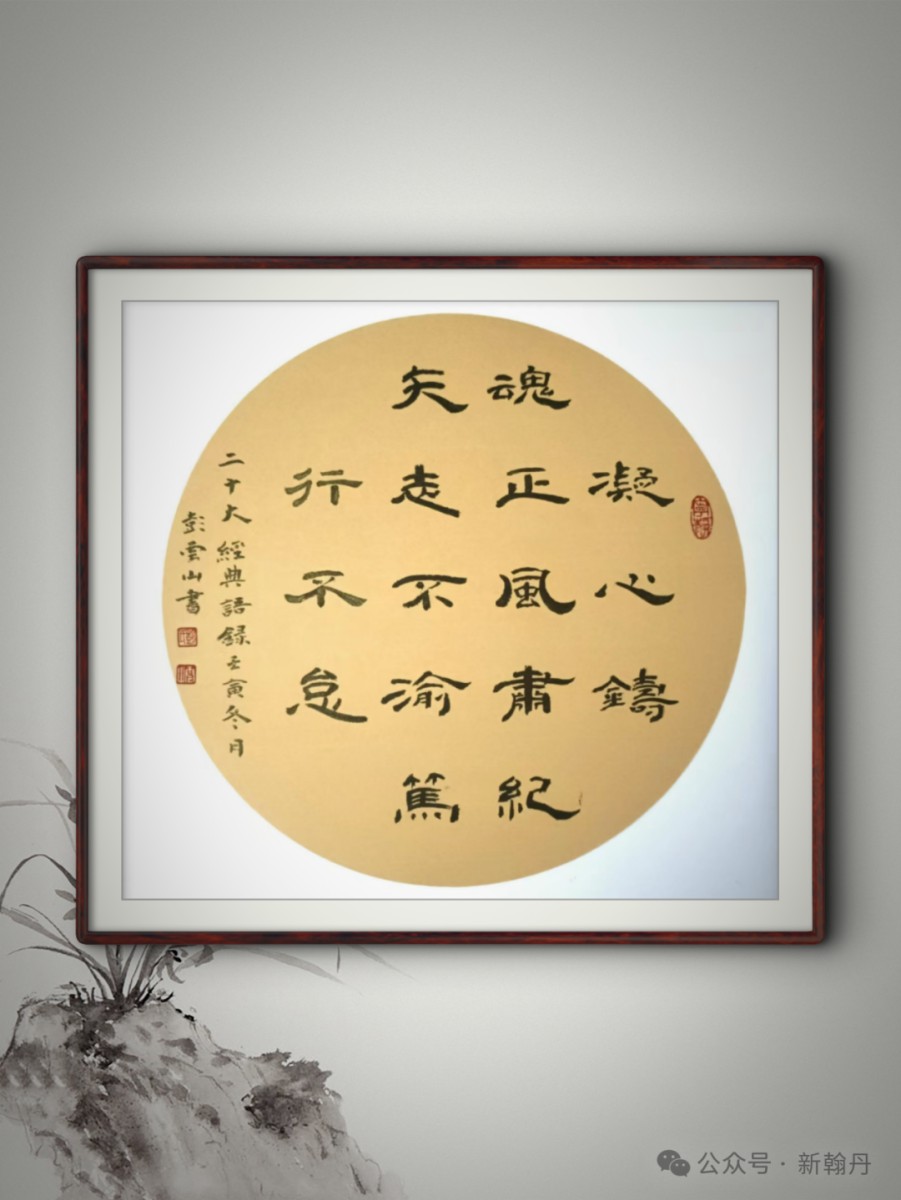 凝心鑄
魂正風肅紀
矢志不渝篤
行不怠
二十大經典語錄壬寅冬月
彭雲山書
公众号 · 新翰丹